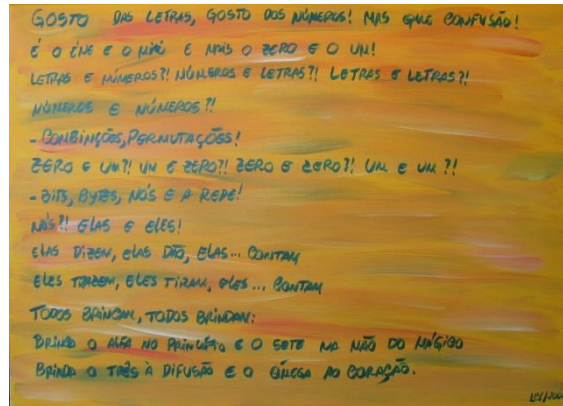 GOSTO DAS LETRAS, GOSTO DOS NÚMEROS! MAS QUE CONFUSÃO!
É O ENE E O MIMI E MAIS O ZERO E O UM!
LETRAS E NÚMEROS?! NÚMEROS E LETRAS?! LETRAS E LETRAS?!
NÚMEROS E NÚMEROS?!
- COMBINÇÕES, PERMUTAÇÕES!
ZERO E UM?! UM E ZERO?! ZERO E ZERO?! UM E UM?!
- BITS, BYTES, NÓS E A REDE!
NÓS?! ELAS E ELES!
ELAS DIZEM, ELAS DÃO, ELAS... CONTAM
ELES TRAZEM, ELES TIRAM, ELES... CONTAM
TODOS BRINCAM, TODOS BRINDAM:
BRINDO O ALFA NO PRINCÍPIO E O SETE NA MÃO DO MÁGICO
BRINDA O TRÊS À DIFUSÃO E O ÓMEGA AO CORAÇÃO.